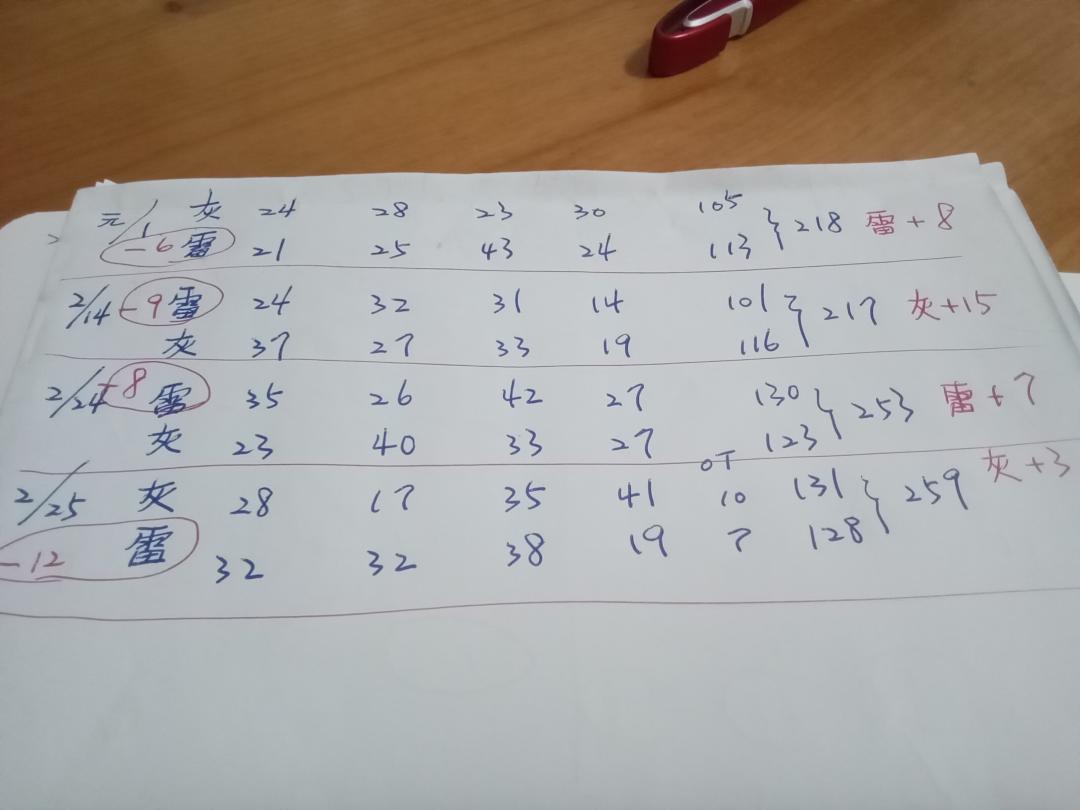 元/1 灰 24 28 23 30 105 } 218 雷+8
-6 雷 21 25 43 24 113
2/14 -9 雷 24 32 31 14 101 } 217 灰+15
灰 37 27 33 19 116
2/24 -8 雷 35 26 42 27 130 } 253 雷+7
灰 23 40 33 27 123
OT
2/25 灰 28 17 35 41 10 131 } 259 灰+3
-12 雷 32 32 38 19 7 128